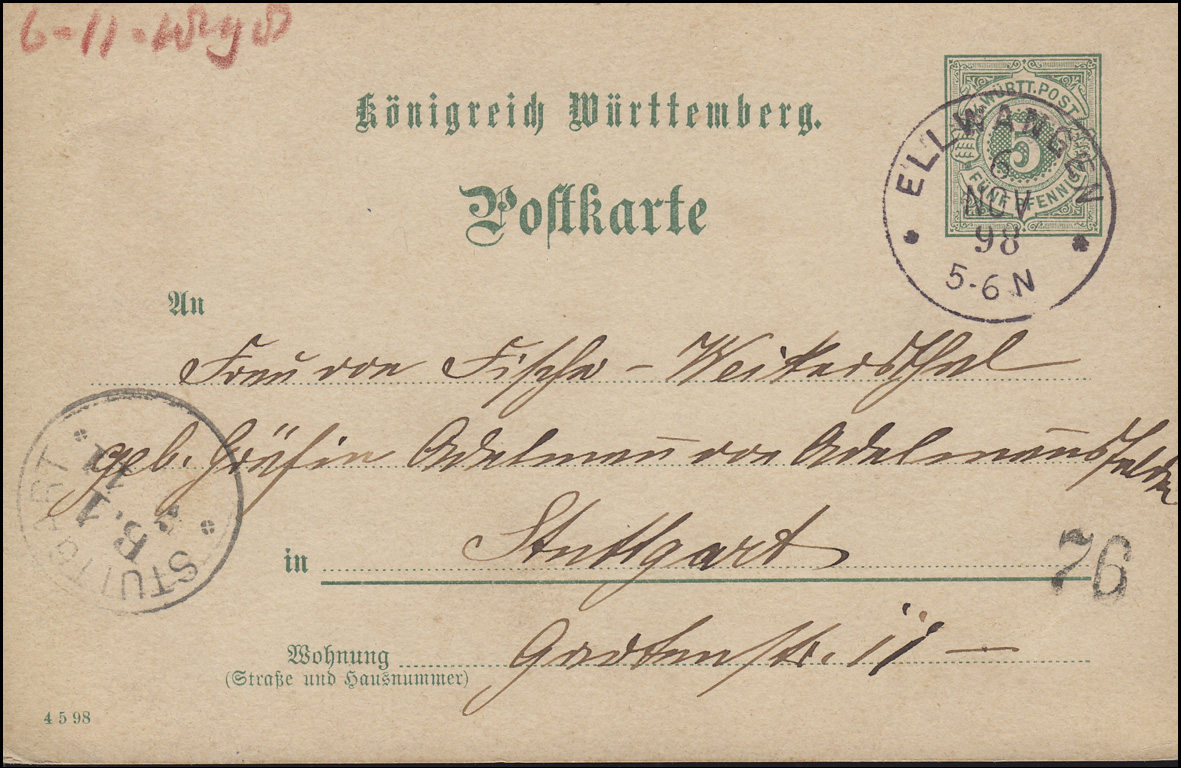 6-11-1898
Königreich Württemberg.
K. WÜRTT. POST
5
FÜNF PFENNIG
Postkarte
ELLWANGEN
6
NOV
98
5-6 N
An
Frau von Fischer-Weikersthal
geb. Gräfin Adelmann von Adelmannsfelden
STUTTGART
in Stuttgart
76
Wohnung Gartenstr. 11
(Straße und Hausnummer)
4 5 98